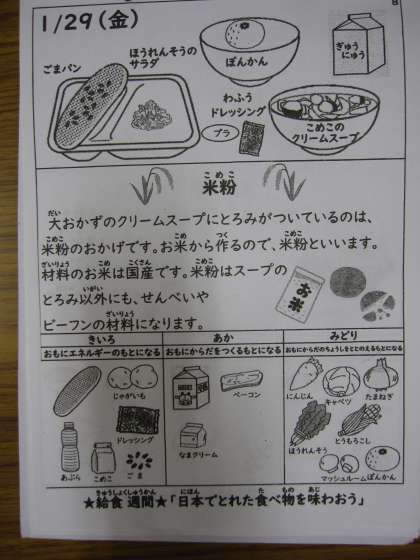 8
1/29(金)
ごまパン
ほうれんそうの
サラダ
ぽんかん
ぎゅう
にゅう
わふう
ドレッシング
プラ
こめこの
クリームスープ
こめこ
米粉
だい
大おかずのクリームスープにとろみがついているのは、
こめこ こめ つく こめこ
米粉のおかげです。お米から作るので、米粉といいます。
ざいりょう こめ こくさん こめこ
材料のお米は国産です。米粉はスープの
いがい
とろみ以外にも、せんべいや
ざいりょう
ビーフンの材料になります。
お米
きいろ
おもにエネルギーのもとになる
じゃがいも
ドレッシング
あぶら
こめこ
ごま
あか
おもにからだをつくるもとになる
ベーコン
なまクリーム
みどり
おもにからだのちょうしをととのえるもとになる
にんじん
キャベツ
たまねぎ
ほうれんそう
とうもろこし
マッシュルーム
ぽんかん
きゅうしょくしゅうかん にほん た もの あじ
★給食週間★「日本でとれた食べ物を味わおう」